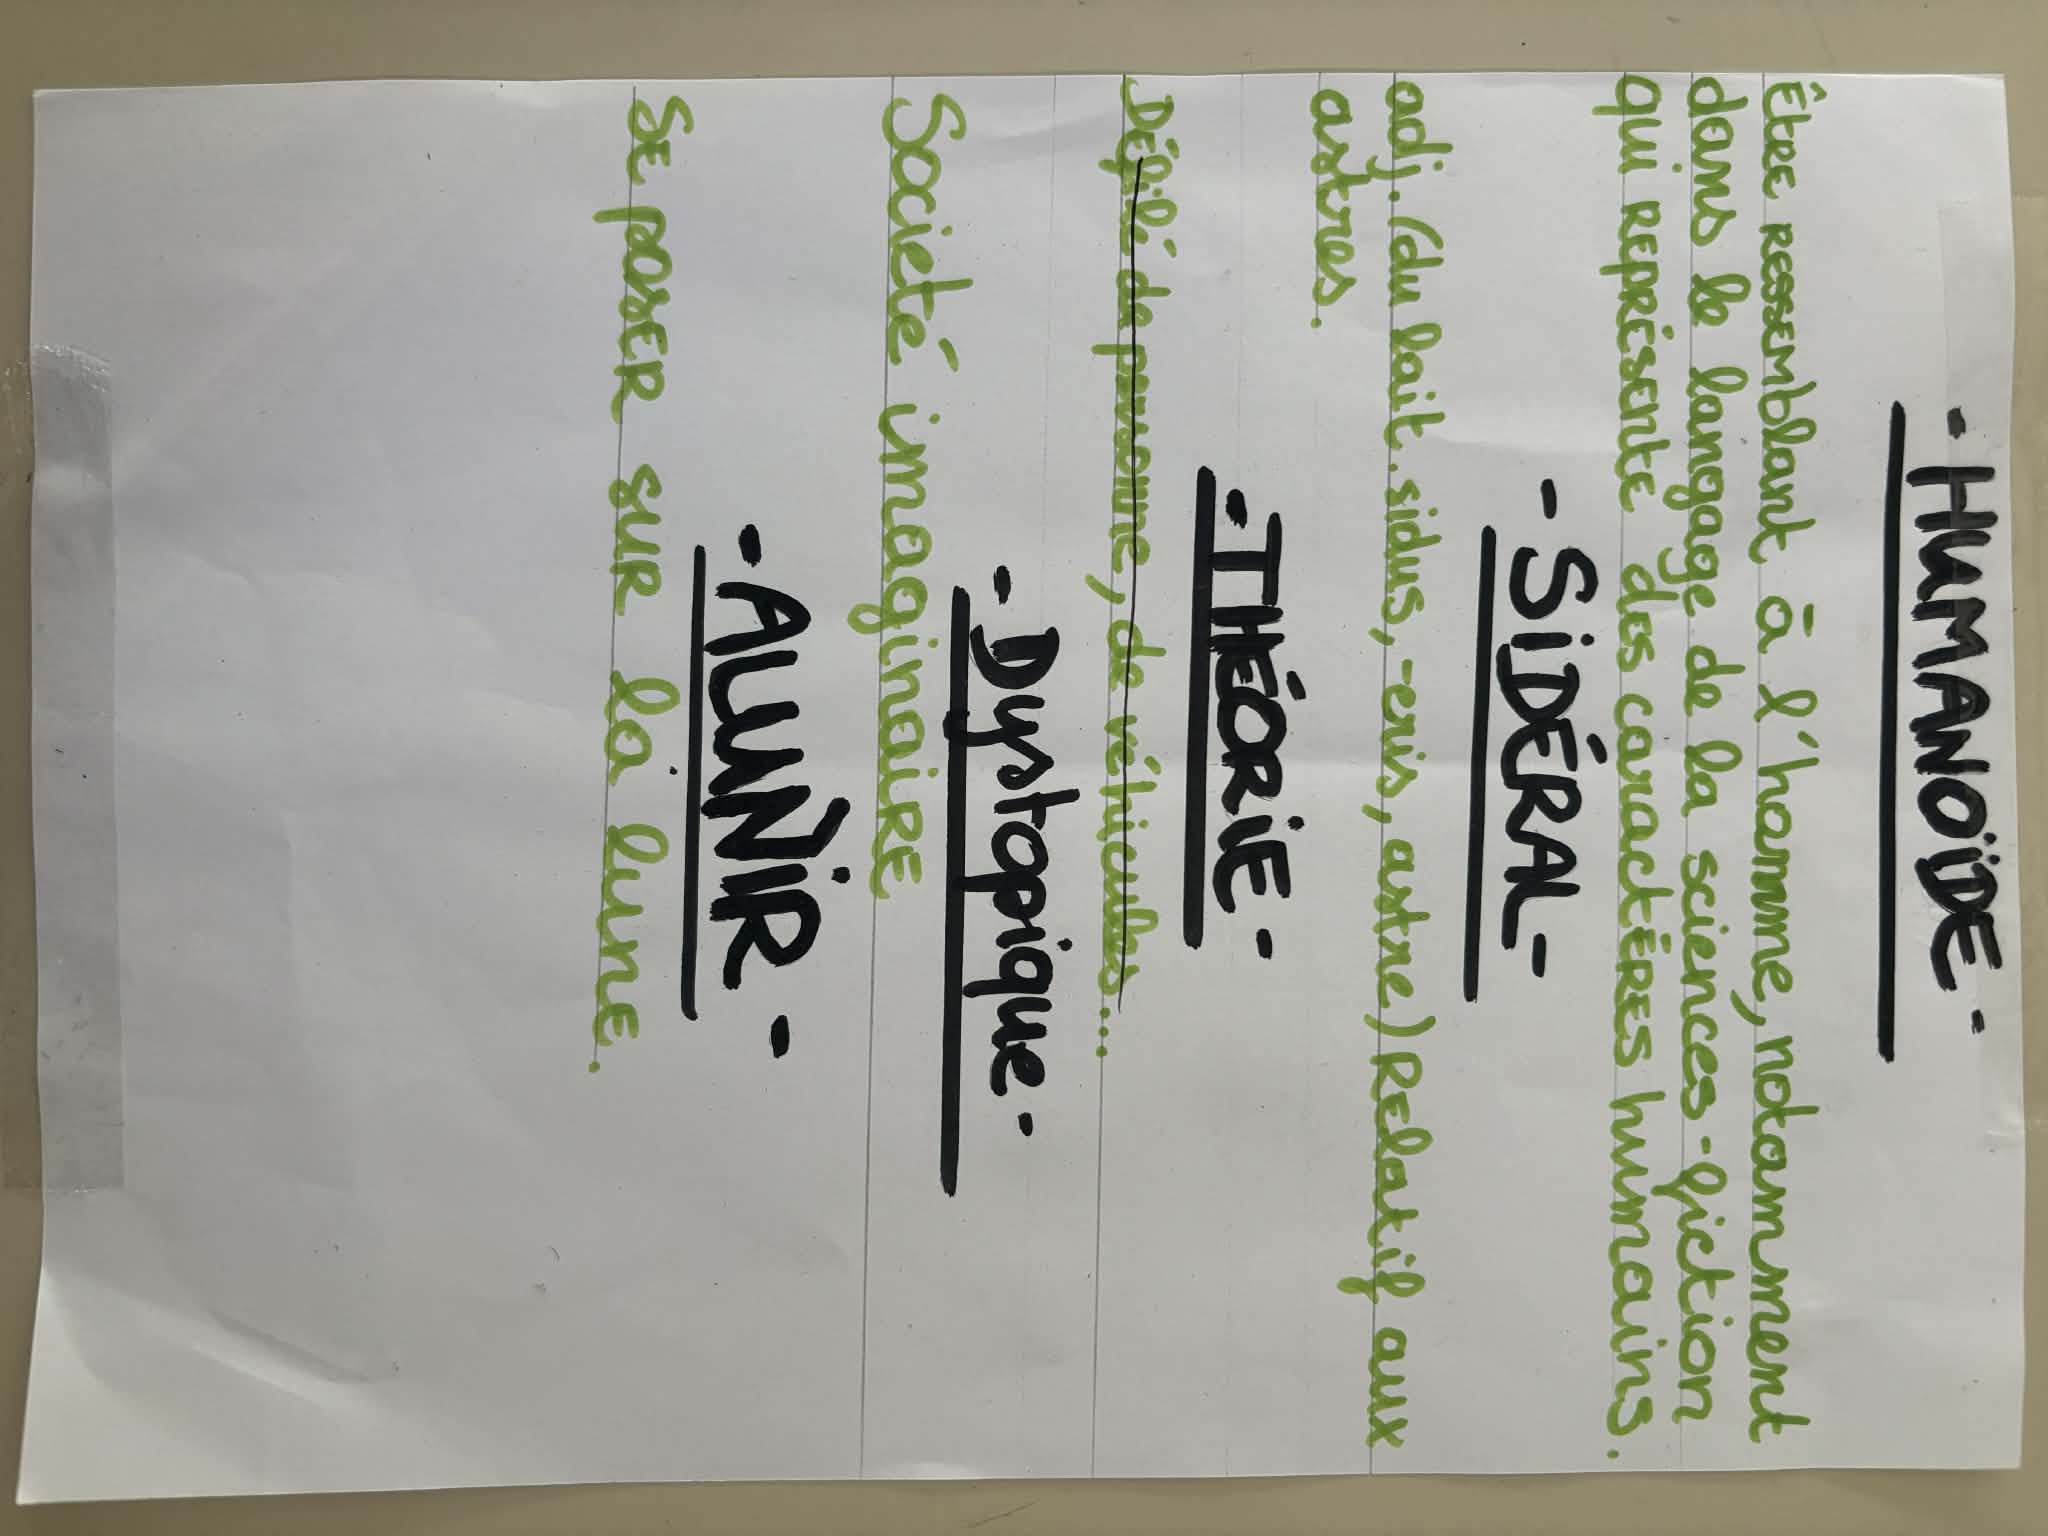 - HUMANOÏDE -
Être ressemblant à l'homme, notamment
dans le langage de la sciences-fiction
qui représente des caractères humains.
- SiDÉRAL -
adj. (du lait. sidus, -eris, astre) Relatif aux
astres.
- THÉORiE -
Défilé de personne, de véhicules...
- Dystopique -
Societé imaginaire
- ALUNiR -
Se poser sur la lune.